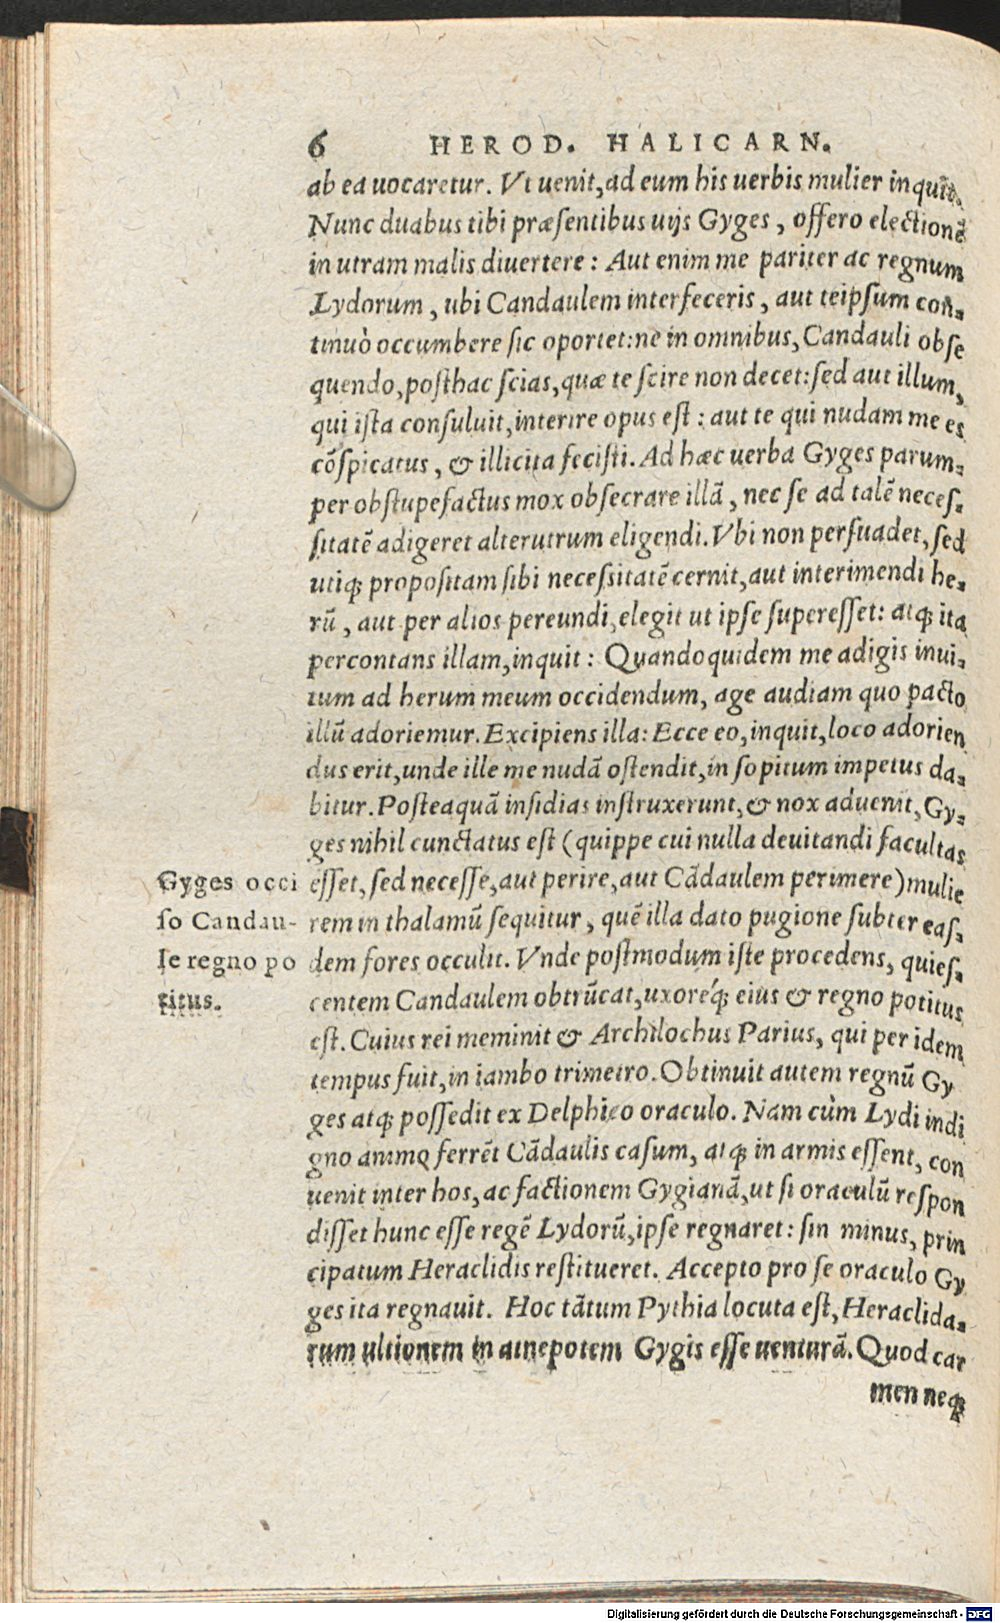 6 HEROD. HALICARN.
ab ea uocaretur. Vt uenit, ad eum his uerbis mulier inquit.
Nunc duabus tibi præſentibus uijs Gyges, offero electionē
in utram malis diuertere: Aut enim me pariter ac regnum
Lydorum, ubi Candaulem interfeceris, aut teipſum con-
tinuò occumbere ſic oportet: ne in omnibus, Candauli obſe
quendo, poſthac ſcias, quæ te ſcire non decet: ſed aut illum,
qui iſta conſuluit, interire opus eſt: aut te qui nudam me es
cōſpicatus, & illicita feciſti. Ad hæc uerba Gyges parum-
per obſtupefactus mox obſecrare illā, nec ſe ad talē neceſ-
ſitatē adigeret alterutrum eligendi. Vbi non perſuadet, ſed
utiqȝ propoſitam ſibi neceſsitatē cernit, aut interimendi he-
rū, aut per alios pereundi, elegit ut ipſe ſupereſſet: atqȝ ita
percontans illam, inquit: Quandoquidem me adigis inui-
tum ad herum meum occidendum, age audiam quo pacto
illū adoriemur. Excipiens illa: Ecce eo, inquit, loco adorien
dus erit, unde ille me nudā oſtendit, in ſopitum impetus da-
bitur. Poſteaquā inſidias inſtruxerunt, & nox aduenit, Gy-
ges nihil cunctatus eſt (quippe cui nulla deuitandi facultas
eſſet, ſed neceſſe, aut perire, aut Cādaulem perimere) mulie
rem in thalamū ſequitur, quē illa dato pugione ſubter eaſ-
dem fores occulit. Vnde poſtmodum iſte procedens, quieſ-
centem Candaulem obtrūcat, uxoréqȝ eius & regno potitus
eſt. Cuius rei meminit & Archilochus Parius, qui per idem
tempus fuit, in iambo trimetro. Obtinuit autem regnū Gy
ges atqȝ poſſedit ex Delphico oraculo. Nam cùm Lydi indi
gno animo ferrēt Cādaulis caſum, atqȝ in armis eſſent, con
uenit inter hos, ac factionem Gygianā, ut ſi oraculū reſpon
diſſet hunc eſſe regē Lydorū, ipſe regnaret: ſin minus, prin
cipatum Heraclidis reſtitueret. Accepto pro ſe oraculo Gy
ges ita regnauit. Hoc tātum Pythia locuta eſt, Heraclida-
rum ultionem in atnepotem Gygis eſſe uenturā. Quod car
men neqȝ
Gyges occi
ſo Candau-
le regno po
titus.
Digitalisierung gefördert durch die Deutsche Forschungsgemeinschaft - DFG